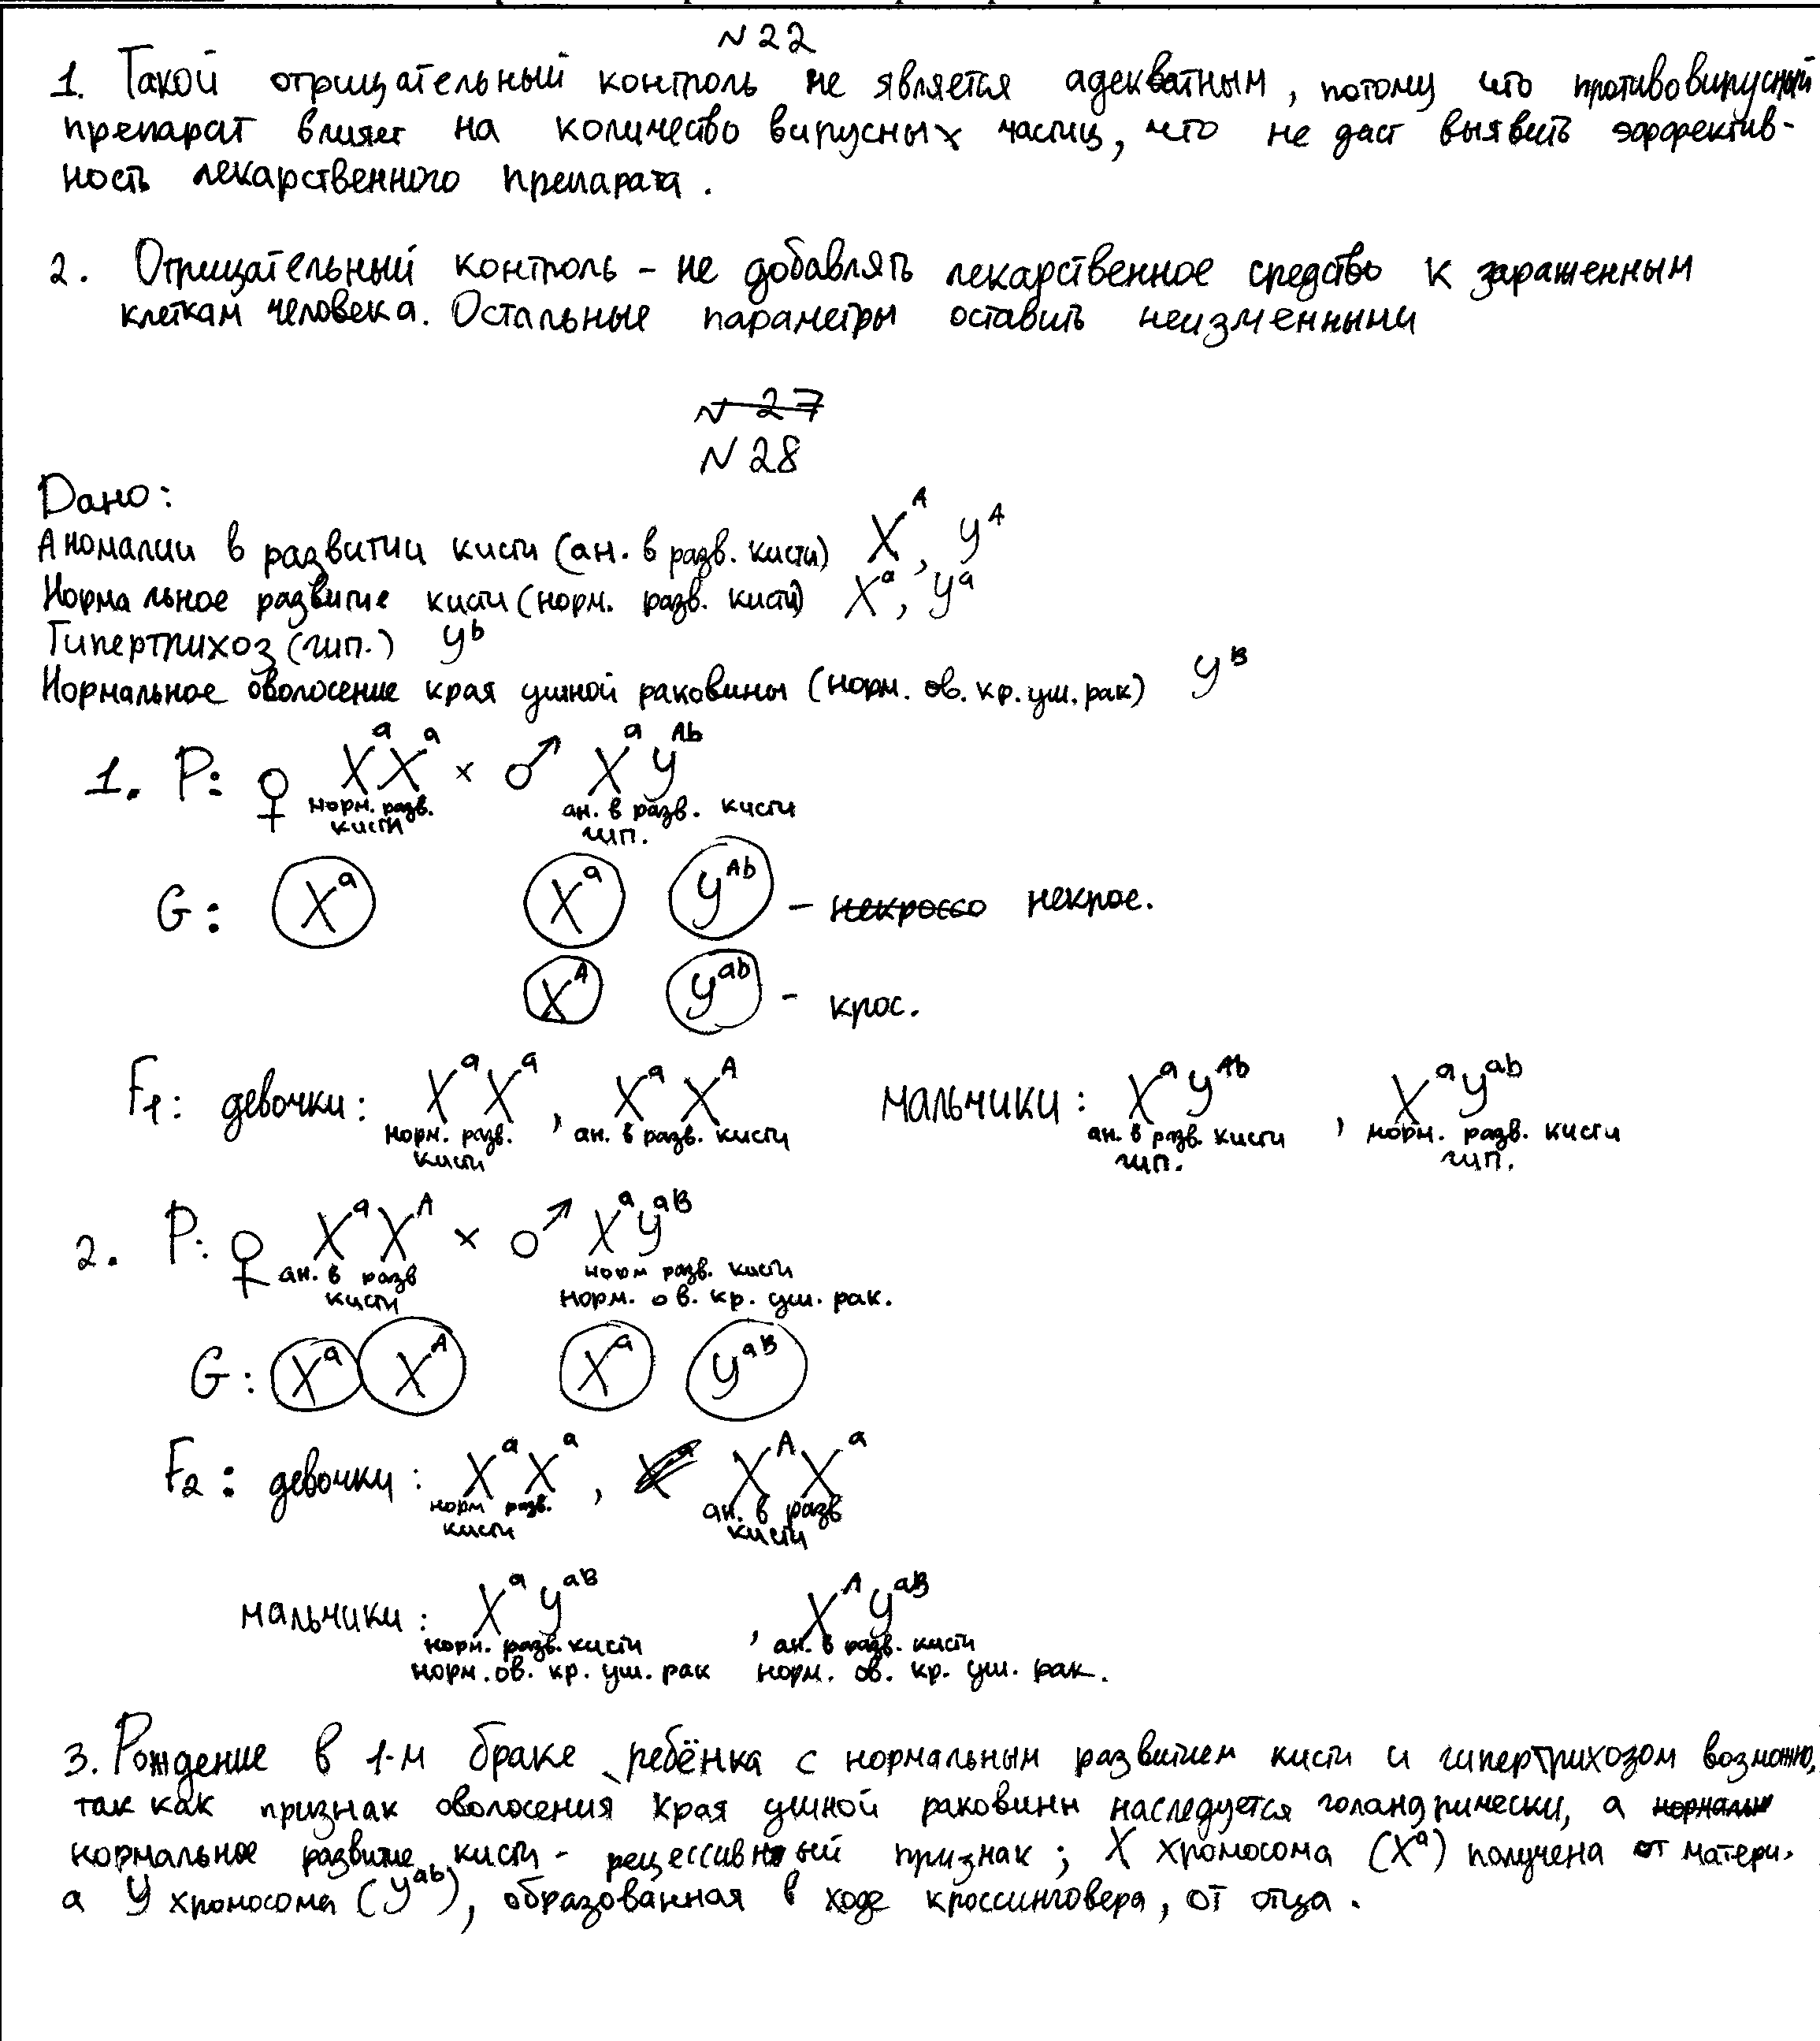 N 22
1. Такой отрицательный контроль не является адекватным, потому что противовирусный
препарат влияет на количество вирусных частиц, что не даст выявить эффектив-
ность лекарственного препарата.
2. Отрицательный контроль - не добавлять лекарственное средство к зараженным
клеткам человека. Остальные параметры оставить неизменными
N 27
N 28
Дано:
Аномалии в развитии кисти (ан. в разв. кисти) X^A, Y^A
Нормальное развитие кисти (норм. разв. кисти) X^a, Y^a
Гипертрихоз (гип.) Y^b
Нормальное оволосение края ушной раковины (норм. ов. кр. уш. рак) Y^B
1. P: ♀ X^a X^a × ♂ X^a Y^Ab
норм. разв. кисти ан. в разв. кисти гип.
G: X^a X^a Y^Ab - некроссо некрос.
X^A Y^ab - крос.
F1: девочки: X^a X^a, X^a X^A мальчики: X^a Y^Ab, X^a Y^ab
норм. разв. кисти ан. в разв. кисти ан. в разв. кисти гип. норм. разв. кисти гип.
2. P: ♀ X^a X^A × ♂ X^a Y^aB
ан. в разв кисти норм разв. кисти
норм. ов. кр. уш. рак.
G: X^a X^A X^a Y^aB
F2: девочки: X^a X^a, X^A X^a
норм разв. кисти ан. в разв кисти
мальчики: X^a Y^aB, X^A Y^aB
норм. разв. кисти ан. в разв. кисти
норм. ов. кр. уш. рак норм. ов. кр. уш. рак.
3. Рождение в 1-м браке ребёнка с нормальным развитием кисти и гипертрихозом возможно,
так как признак оволосения края ушной раковины наследуется голандрически, а нормальн
нормальное развитие кисти - рецессивный признак; X хромосома (X^a) получена от матери,
а Y хромосома (Y^ab), образованная в ходе кроссинговера, от отца.